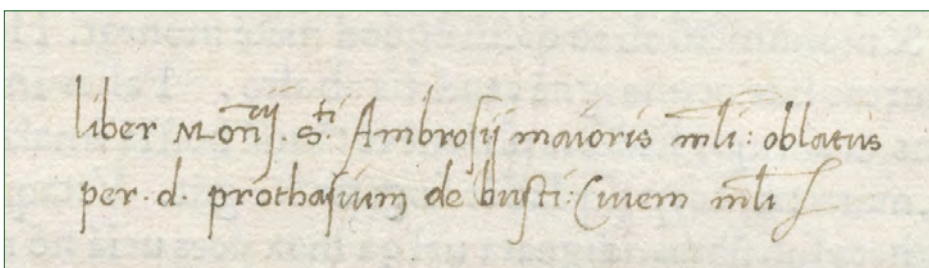 liber Mon^rij. S^ti. Ambrosij maioris mli: oblatus
per. d. prothasium de busti: Civem mli